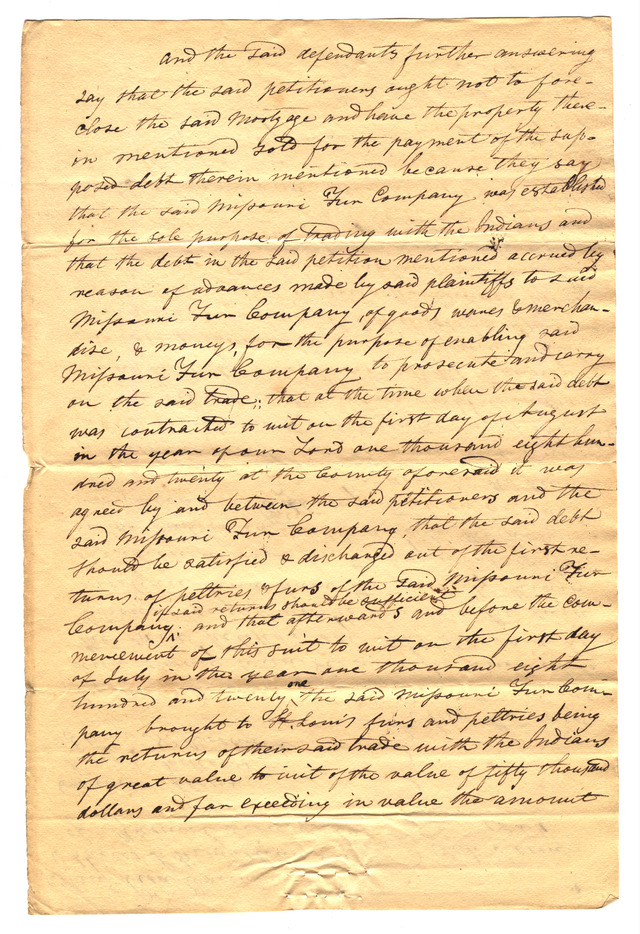 and the said defendants further answering
say that the said petitioners ought not to fore-
close the said Mortgage and have the property there-
in mentioned sold for the payment of the sup-
posed debt therein mentioned because they say
that the said Missouri Fur Company was established
for the sole purpose of trading with the Indians and
that the debt in the said petition mentioned accrued by
reason of advances made by said plaintiffs to said
Missouri Fur Company, of goods wares & merchan-
dise, & moneys, for the purpose of enabling said
Missouri Fur Company to prosecute and carry
on the said trade; that at the time when the said debt
was contracted to wit on the first day of August
in the year of our Lord one thousand eight hun-
dred and twenty at the County aforesaid it was
agreed by and between the said petitioners and the
said Missouri Fur Company, that the said debt
should be satisfied & discharged out of the first re-
turns of peltries & furs of the said Missouri Fur
if said returns should be sufficient
Company; and that afterwards and before the com-
mencement of this suit to wit on the first day
of July in the year one thousand eight
hundred and twenty one the said Missouri Fur Com-
pany brought to St. Louis furs and peltries being
the returns of their said trade with the Indians
of great value to wit of the value of fifty thousand
dollars and far exceeding in value the amount